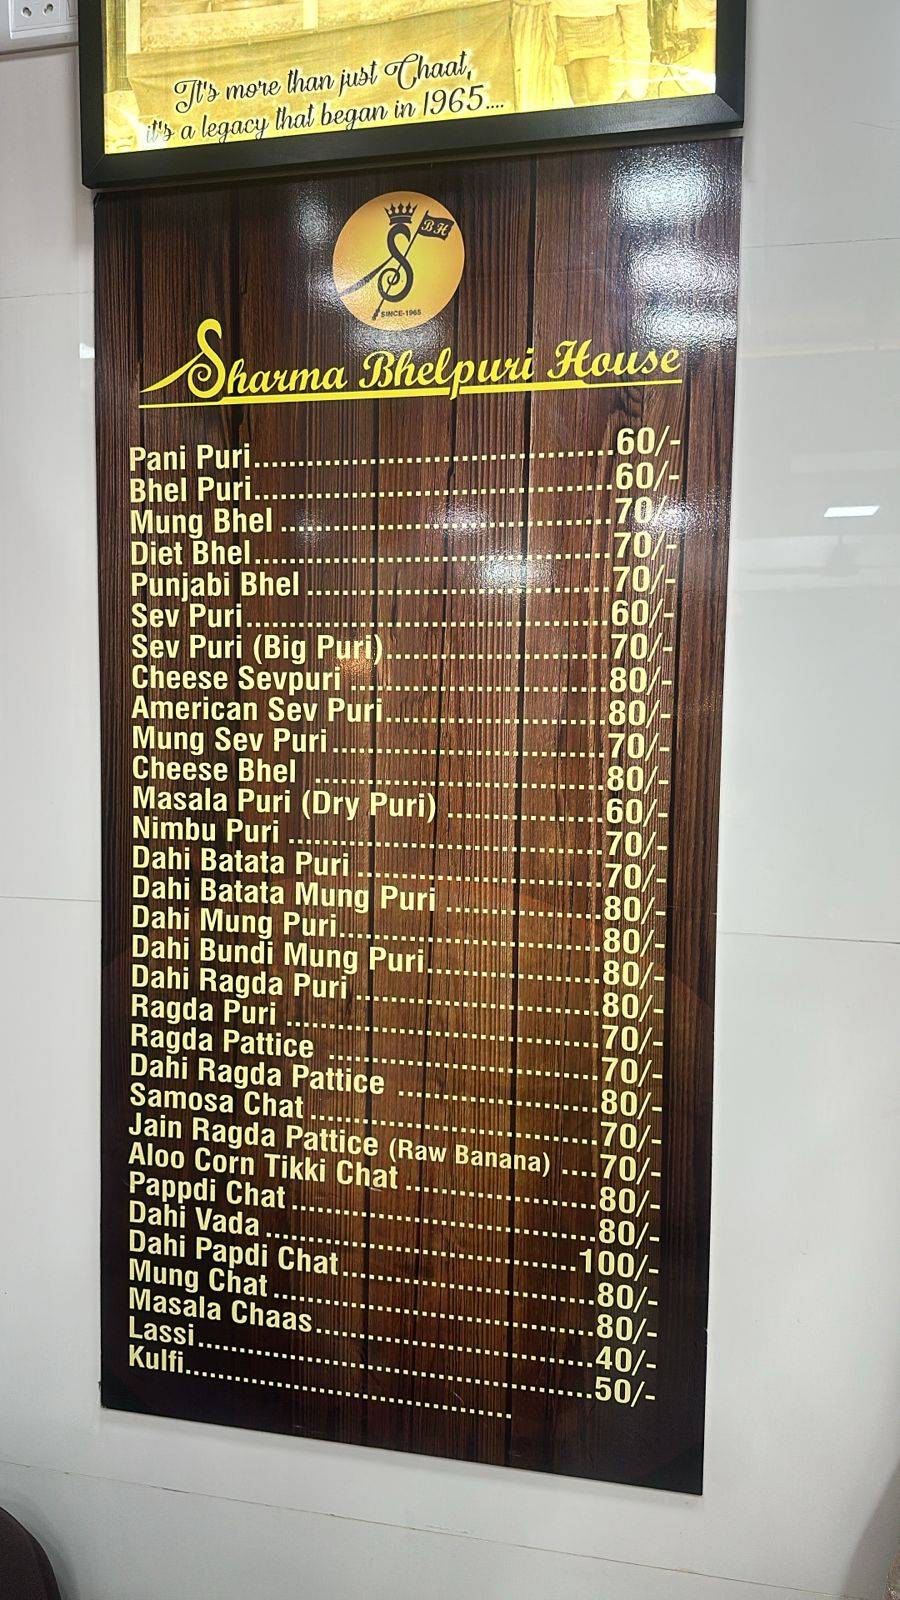 It's more than just Chaat,
it's a legacy that began in 1965....
BH
S
SINCE-1965
Sharma Bhelpuri House
Pani Puri........................................60/-
Bhel Puri........................................60/-
Mung Bhel ....................................70/-
Diet Bhel........................................70/-
Punjabi Bhel .................................70/-
Sev Puri.........................................60/-
Sev Puri (Big Puri).........................70/-
Cheese Sevpuri .............................80/-
American Sev Puri.........................80/-
Mung Sev Puri...............................70/-
Cheese Bhel .................................80/-
Masala Puri (Dry Puri) ..................60/-
Nimbu Puri ...................................70/-
Dahi Batata Puri ...........................70/-
Dahi Batata Mung Puri .................80/-
Dahi Mung Puri.............................80/-
Dahi Bundi Mung Puri...................80/-
Dahi Ragda Puri ...........................80/-
Ragda Puri ...................................70/-
Ragda Pattice ..............................70/-
Dahi Ragda Pattice ......................80/-
Samosa Chat ................................70/-
Jain Ragda Pattice (Raw Banana) ....70/-
Aloo Corn Tikki Chat .....................80/-
Pappdi Chat ..................................80/-
Dahi Vada ...................................100/-
Dahi Papdi Chat............................80/-
Mung Chat ...................................80/-
Masala Chaas...............................40/-
Lassi.............................................50/-
Kulfi.....................................